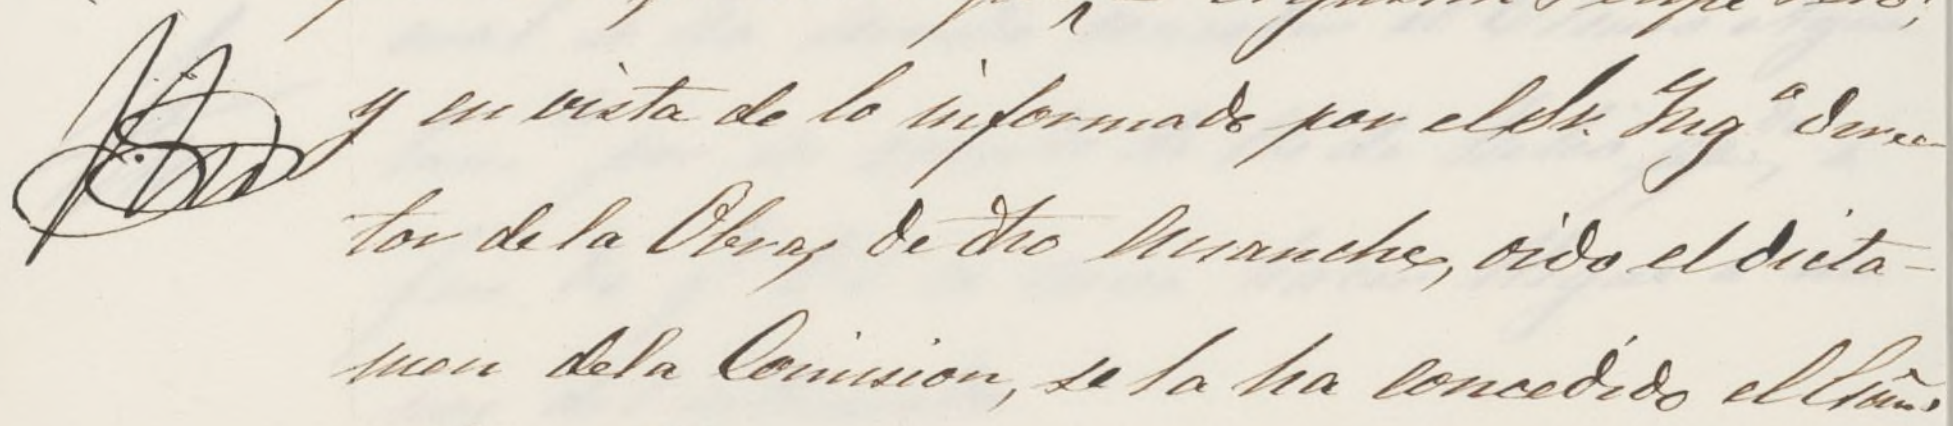 y en vista de lo informado por el Sr. Ingº direc-
tor de la Obras de dho Ensanche, oido el dicta-
men de la Comision, se la ha concedido el